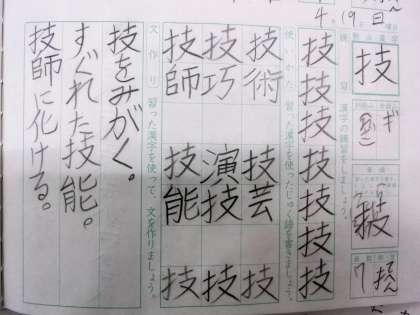 4.19.日
技
ギ
漢字の練習をしましょう。
技技技技技技技
使いかた 習った漢字を使ったじゅく語を書きましょう。
技術 技芸 技
技巧 演技 技
技師 技能 技
文作り 習った漢字を使って文を作りましょう。
技をみがく。
すぐれた技能。
技師に化ける。